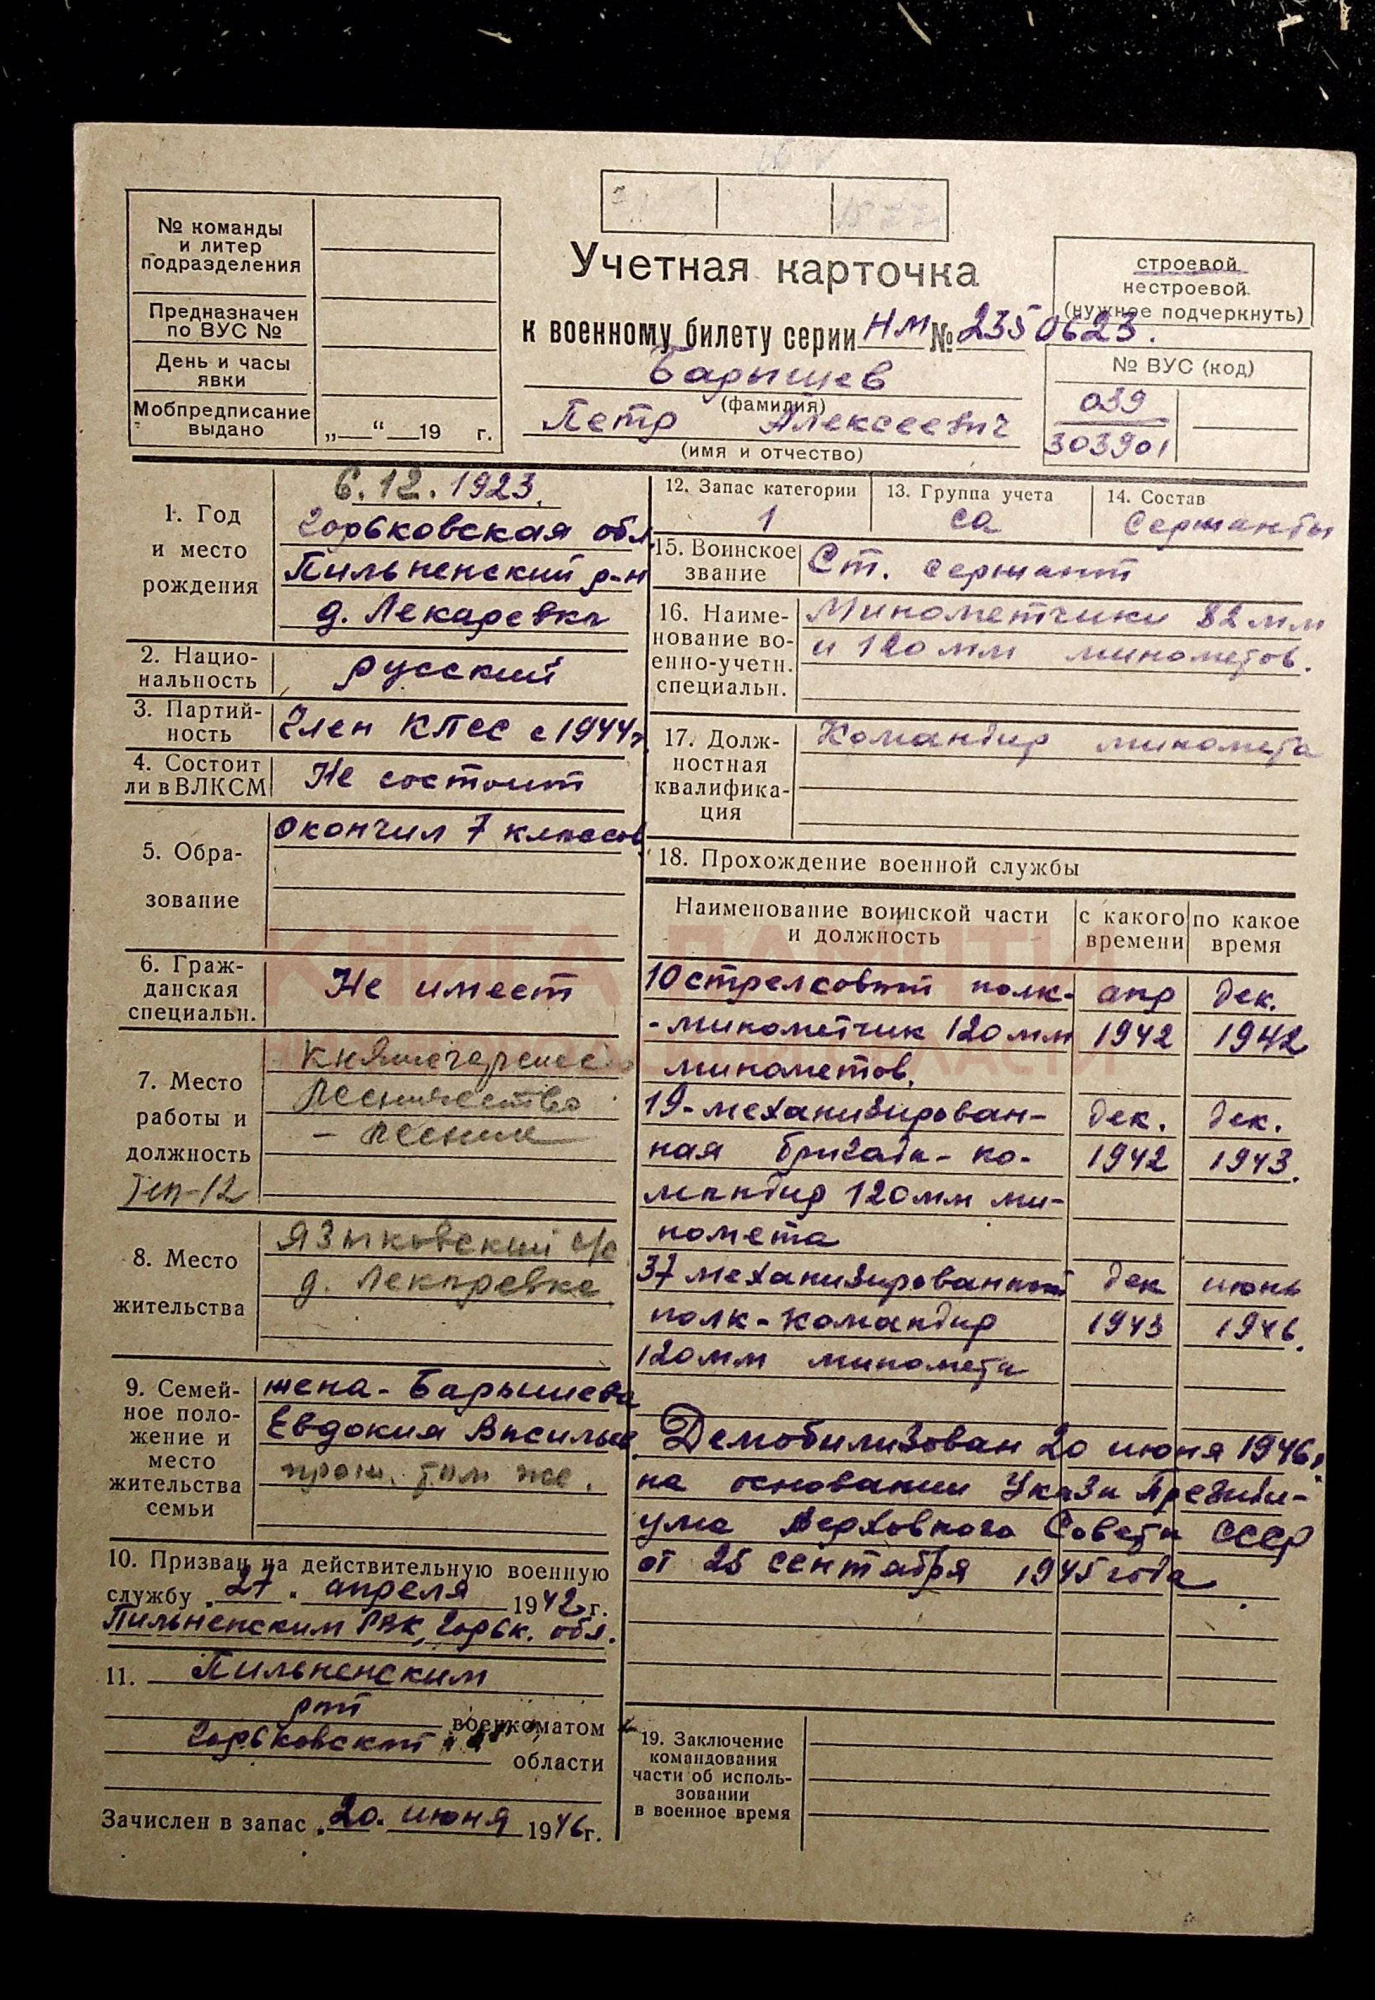 № команды
и литер
подразделения
Предназначен
по ВУС №
День и часы
явки
Мобпредписание
выдано
„ “ 19 г.
Учетная карточка
к военному билету серии НМ № 2350623.
Барышев
(фамилия)
Петр Алексеевич
(имя и отчество)
строевой
нестроевой
(нужное подчеркнуть)
№ ВУС (код)
039
303901
1. Год
и место
рождения
6.12.1923.
Горьковская обл.
Пильненский р-н
д. Лекаревка
2. Нацио-
нальность
русский
3. Партий-
ность
Член КПСС с 1944г.
4. Состоит
ли в ВЛКСМ
Не состоит
5. Обра-
зование
окончил 7 классов
6. Граж-
данская
специальн.
Не имеет
7. Место
работы и
должность
лесничество
- лесник
8. Место
жительства
Языковский с/с
д. Лекаревка
9. Семей-
ное поло-
жение и
место
жительства
семьи
жена - Барышева
Евдокия Васильев
прож. там же.
10. Призван на действительную военную
службу „27“ апреля 1942г.
Пильненским РВК, Горьк. обл.
11. Пильненским
рай
военкоматом
Горьковской
области
Зачислен в запас „20“ июня 1946г.
12. Запас категории
1
13. Группа учета
СА
14. Состав
Сержанты
15. Воинское
звание
Ст. сержант
16. Наиме-
нование во-
енно-учетн.
специальн.
Минометчики 82 мм
и 120 мм минометов.
17. Долж-
ностная
квалифика-
ция
Командир миномета
18. Прохождение военной службы
Наименование воинской части
и должность
с какого
времени
по какое
время
10 стрелковый полк- апр дек.
- минометчик 120 мм 1942 1942
минометов.
19-механизирован- дек. дек.
ная бригада - ко- 1942 1943.
мандир 120мм ми-
номета
37 механизированный дек июнь
полк - командир 1943 1946.
120мм миномета
Демобилизован 20 июня 1946г.
на основании Указа Президи-
ума Верховного Совета СССР
от 25 сентября 1945 года.
19. Заключение
командования
части об исполь-
зовании
в военное время
КНИГА ПАМЯТИ